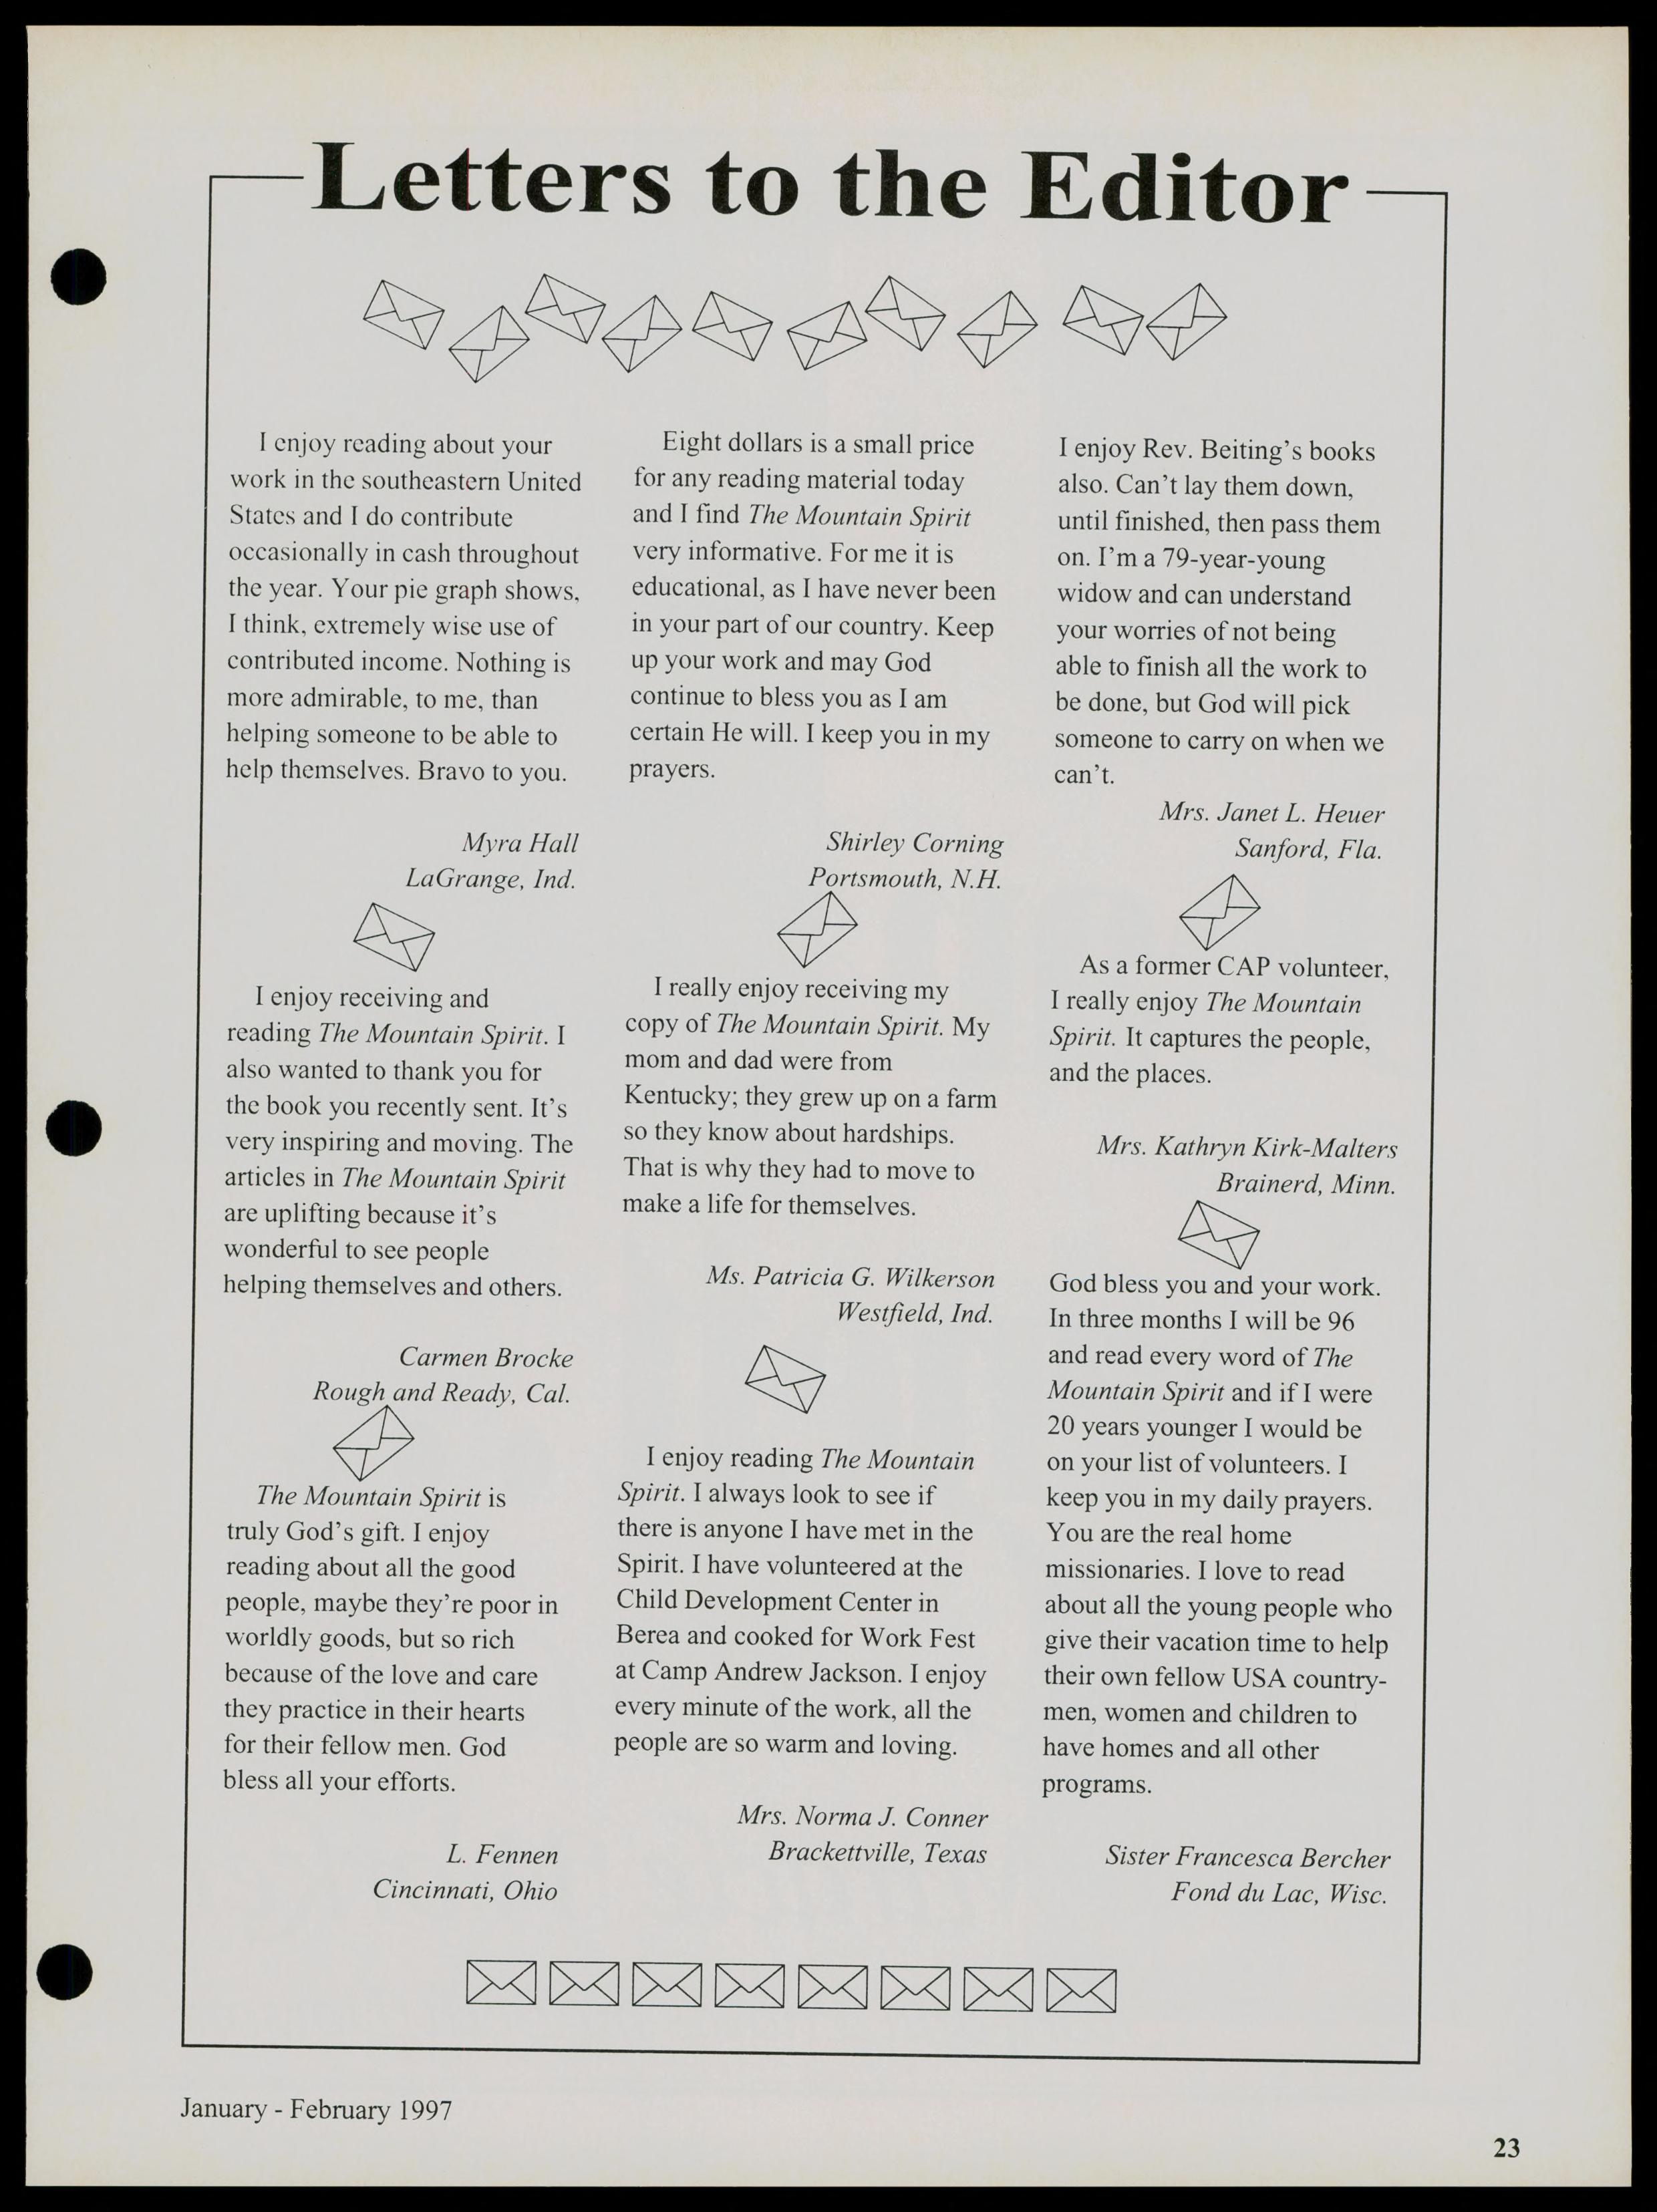 Letters to the Editor
I enjoy reading about your
work in the southeastern United
States and I do contribute
occasionally in cash throughout
the year. Your pie graph shows,
I think, extremely wise use of
contributed income. Nothing is
more admirable, to me, than
helping someone to be able to
help themselves. Bravo to you.
Myra Hall
LaGrange, Ind.
I enjoy receiving and
reading The Mountain Spirit. I
also wanted to thank you for
the book you recently sent. It's
very inspiring and moving. The
articles in The Mountain Spirit
are uplifting because it's
wonderful to see people
helping themselves and others.
Carmen Brocke
Rough and Ready, Cal.
The Mountain Spirit is
truly God's gift. I enjoy
reading about all the good
people, maybe they're poor in
worldly goods, but so rich
because of the love and care
they practice in their hearts
for their fellow men. God
bless all your efforts.
L. Fennen
Cincinnati, Ohio
Eight dollars is a small price
for any reading material today
and I find The Mountain Spirit
very informative. For me it is
educational, as I have never been
in your part of our country. Keep
up your work and may God
continue to bless you as I am
certain He will. I keep you in my
prayers.
Shirley Corning
Portsmouth, N.H.
I really enjoy receiving my
copy of The Mountain Spirit. My
mom and dad were from
Kentucky; they grew up on a farm
so they know about hardships.
That is why they had to move to
make a life for themselves.
Ms. Patricia G. Wilkerson
Westfield, Ind.
I enjoy reading The Mountain
Spirit. I always look to see if
there is anyone I have met in the
Spirit. I have volunteered at the
Child Development Center in
Berea and cooked for Work Fest
at Camp Andrew Jackson. I enjoy
every minute of the work, all the
people are so warm and loving.
Mrs. Norma J. Conner
Brackettville, Texas
I enjoy Rev. Beiting's books
also. Can't lay them down,
until finished, then pass them
on. I'm a 79-year-young
widow and can understand
your worries of not being
able to finish all the work to
be done, but God will pick
someone to carry on when we
can't.
Mrs. Janet L. Heuer
Sanford, Fla.
As a former CAP volunteer,
I really enjoy The Mountain
Spirit. It captures the people,
and the places.
Mrs. Kathryn Kirk-Malters
Brainerd, Minn.
God bless you and your work.
In three months I will be 96
and read every word of The
Mountain Spirit and if I were
20 years younger I would be
on your list of volunteers. I
keep you in my daily prayers.
You are the real home
missionaries. I love to read
about all the young people who
give their vacation time to help
their own fellow USA country-
men, women and children to
have homes and all other
programs.
Sister Francesca Bercher
Fond du Lac, Wisc.
January - February 1997
23